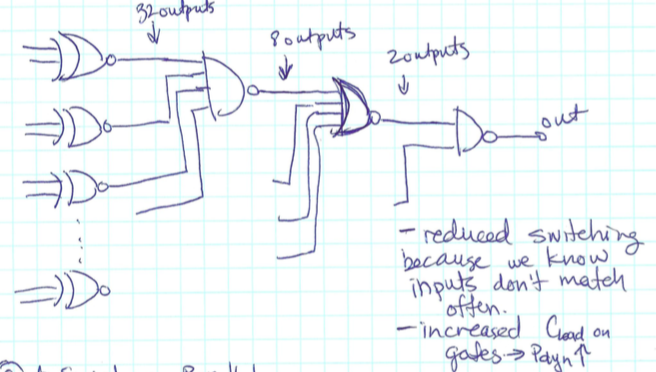 32 outputs
8 outputs
2 outputs
out
- reduced switching
because we know
inputs don't match
often.
- increased Cload on
gates → Pdyn ↑